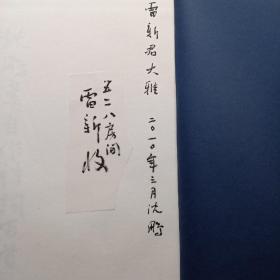 雷新君大雅 二〇一〇年三月沈鹏
五二八房间
雷新收